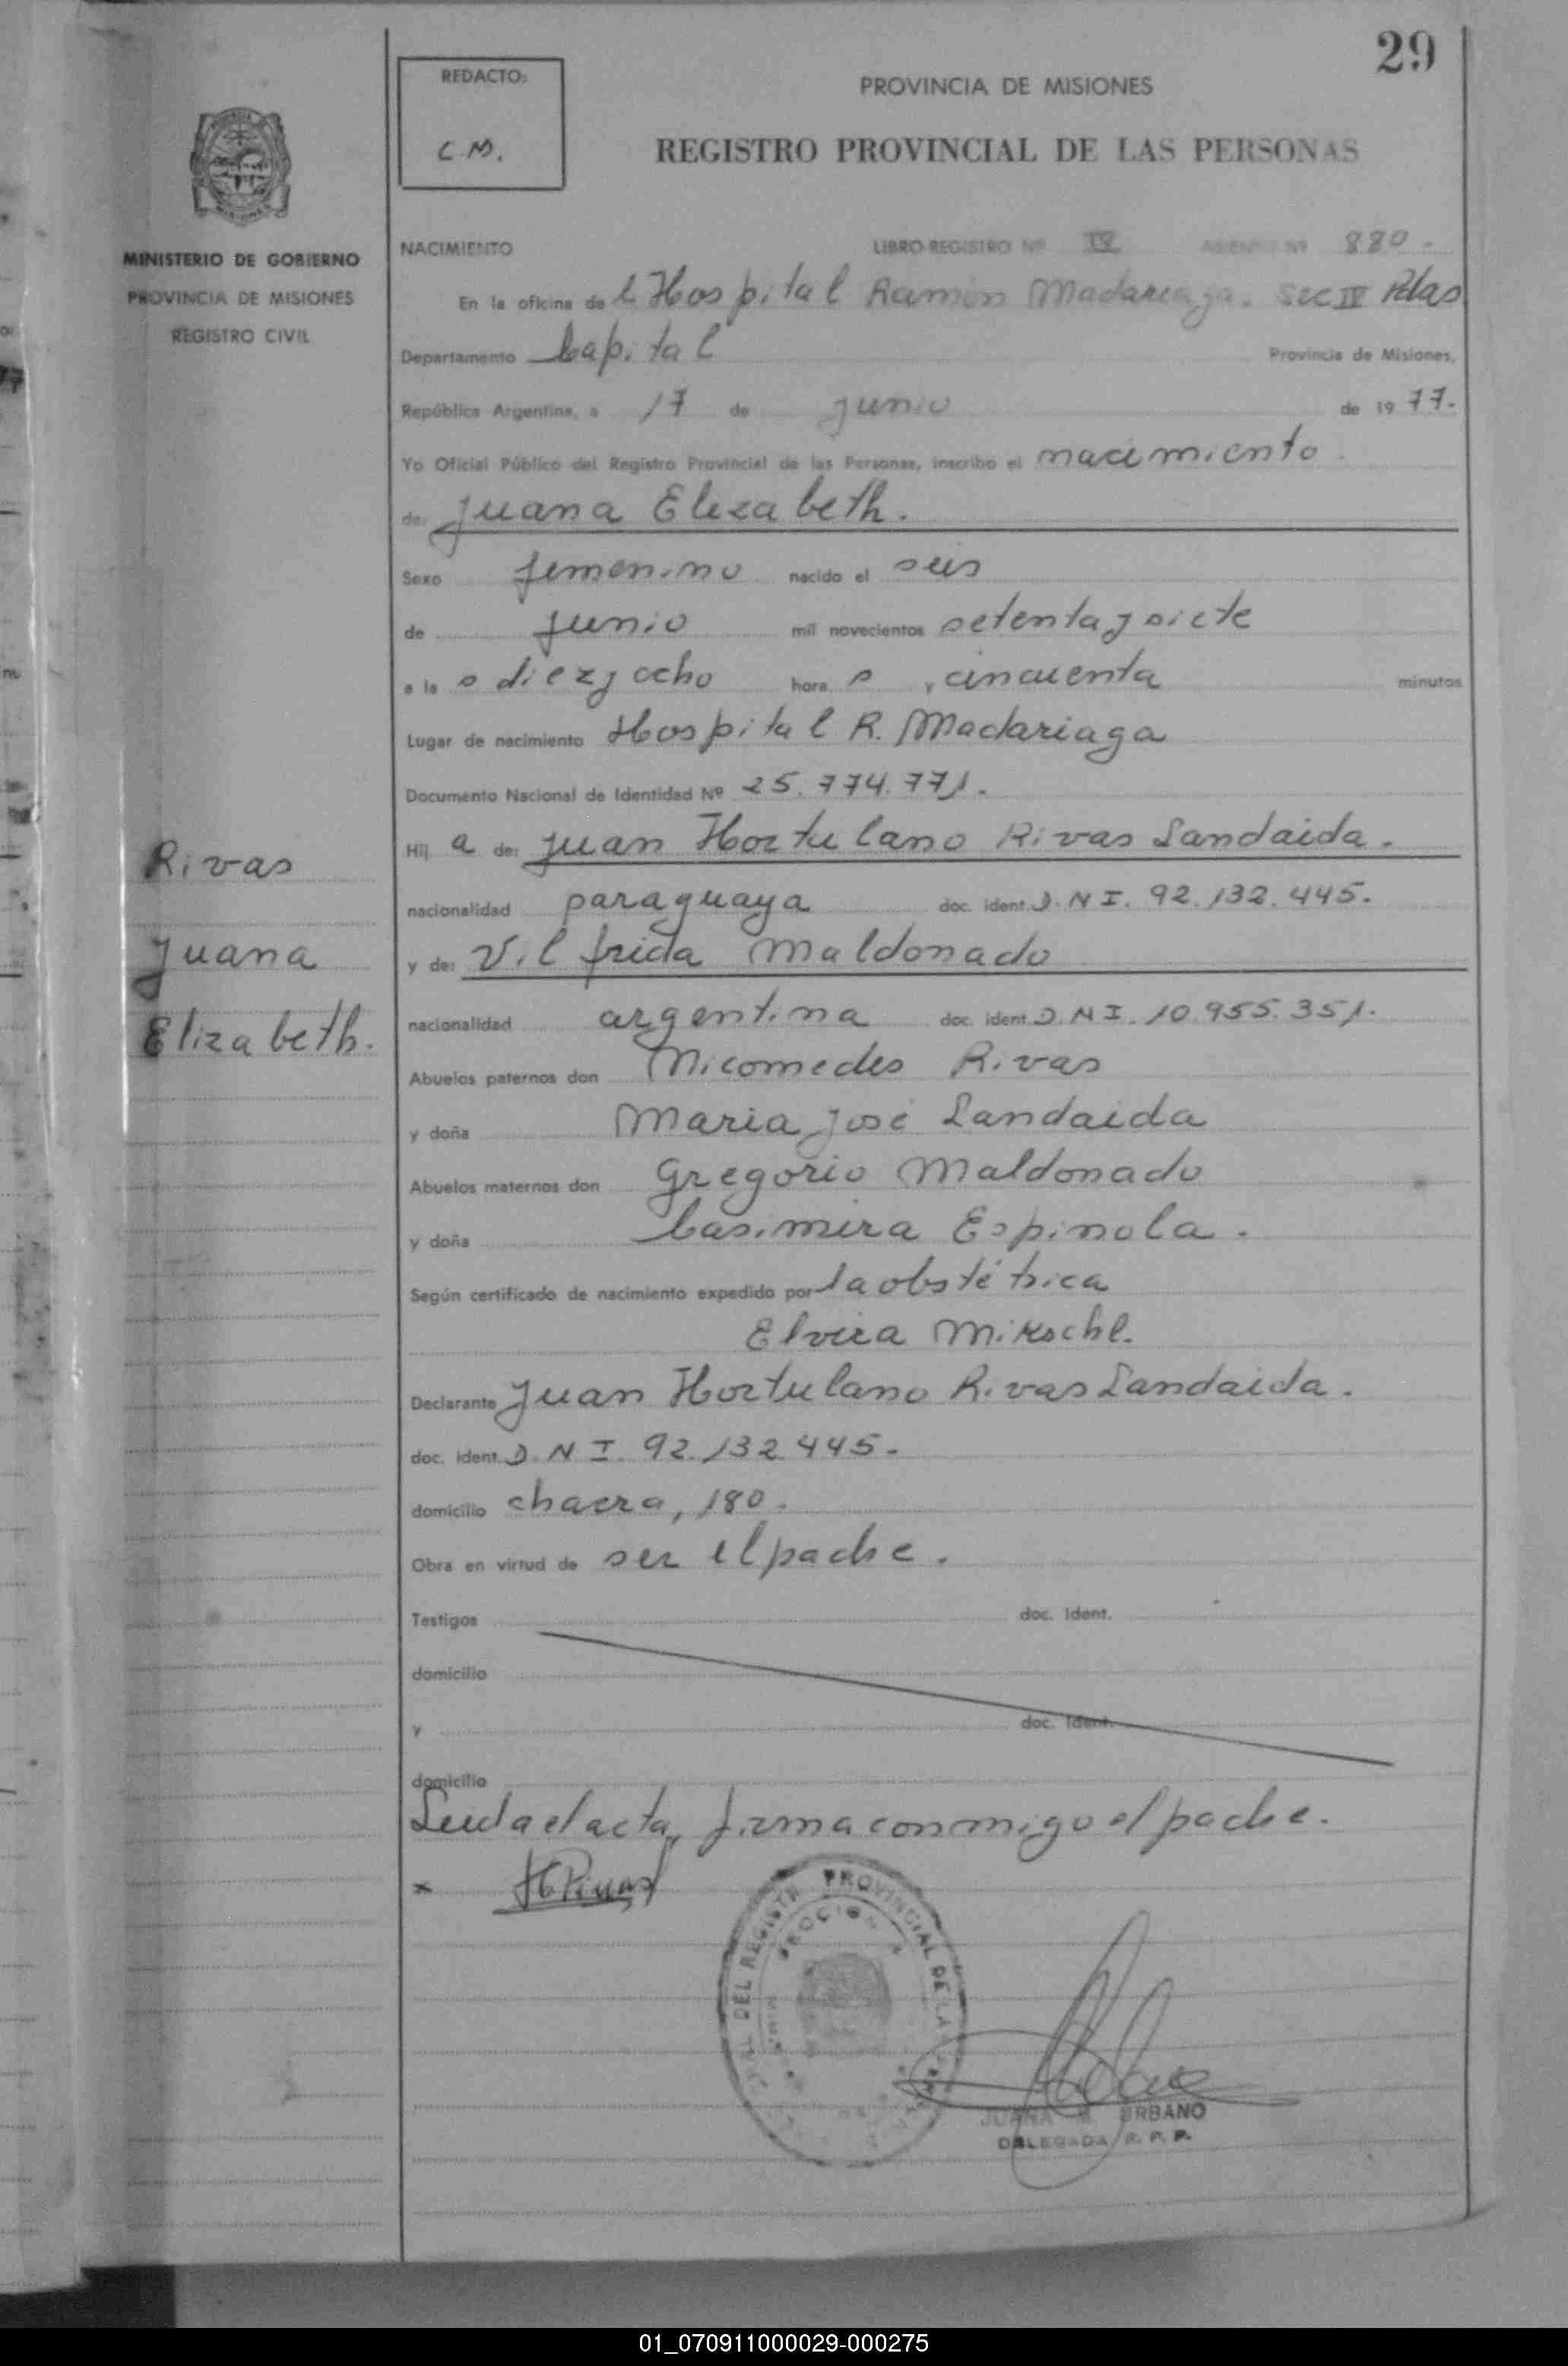 29
REDACTO:
C.M.
PROVINCIA DE MISIONES
REGISTRO PROVINCIAL DE LAS PERSONAS
MINISTERIO DE GOBIERNO
PROVINCIA DE MISIONES
REGISTRO CIVIL
NACIMIENTO LIBRO-REGISTRO Nº IV ASIENTO Nº 880.
En la oficina de l Hospital Ramón Madariaga. Sec IV Pdas
Departamento Capital Provincia de Misiones,
República Argentina, a 17 de junio de 1977.
Yo Oficial Público del Registro Provincial de las Personas, inscribo el nacimiento
de: Juana Elizabeth.
Sexo femenino nacido el seis
de junio mil novecientos setenta y siete
a las diez y ocho horas y cincuenta minutos
Lugar de nacimiento Hospital R. Madariaga
Documento Nacional de Identidad Nº 25.774.771.
Hija de: Juan Hortulano Rivas Landaida.
nacionalidad paraguaya doc. ident. D.N.I. 92.132.445.
y de: Vilfrida Maldonado
nacionalidad argentina doc. ident. D.N.I. 10.955.351.
Abuelos paternos don Nicomedes Rivas
y doña Maria José Landaida
Abuelos maternos don Gregorio Maldonado
y doña Casimira Espinola.
Según certificado de nacimiento expedido por la obstétrica
Elvira Mikschl.
Declarante Juan Hortulano Rivas Landaida.
doc. ident. D.N.I. 92.132.445.
domicilio chacra, 180.
Obra en virtud de ser el padre.
Testigos doc. ident.
domicilio
y doc. ident.
domicilio
Leida el acta, firma conmigo el padre.
x HRivas
Rivas
Juana
Elizabeth.
DEL REGISTR PROVINCIAL DE LA
JUANA M. URBANO
DELEGADA R. P. P.
01_070911000029-000275